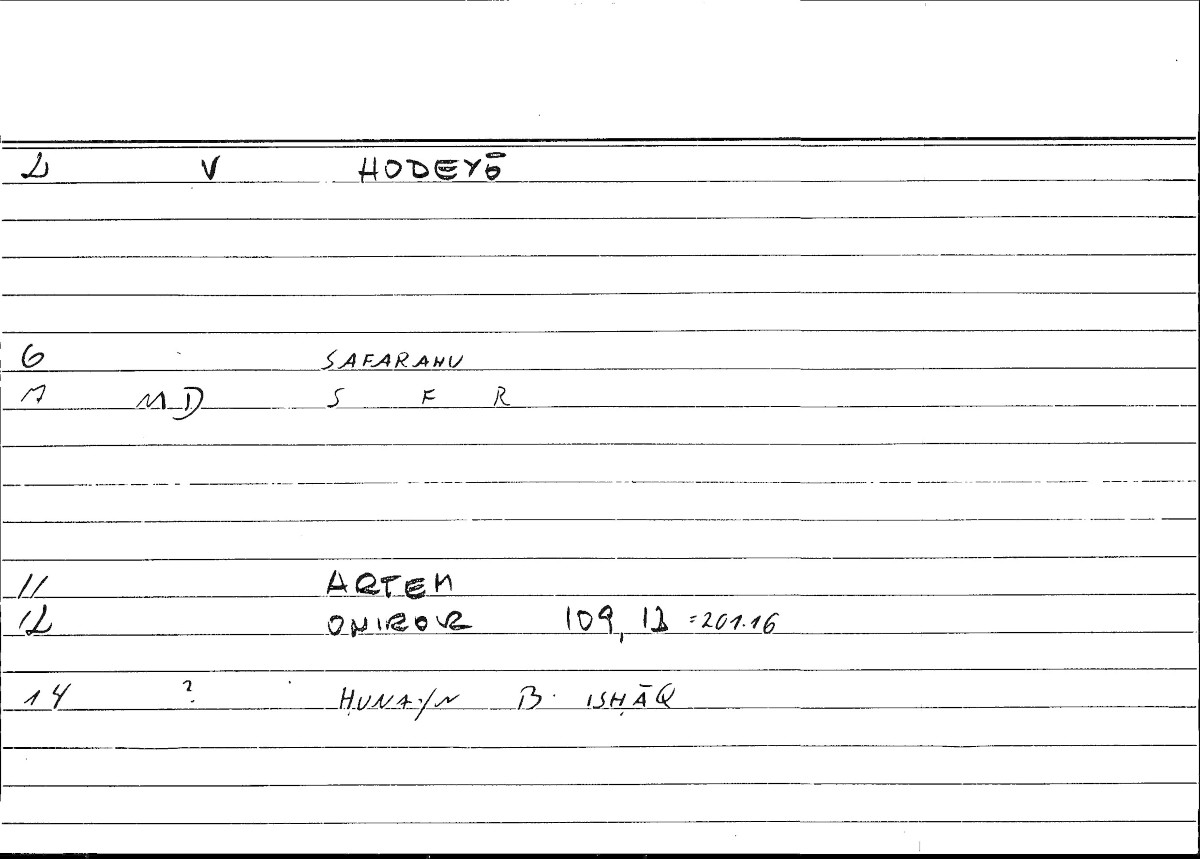 2 V HODEYŌ
6 SAFARAHU
7 MD S F R
11 ARTEM
12 ONIROCR 109, 12 =201.16
14 ? ḤUNAYN B. ISḤĀQ